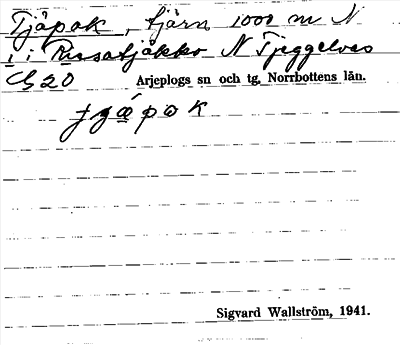 Tjåpok, tjärn 1000 m N
i i Rissatjåkko N Tjeggelvas
C 20 Arjeplogs sn och tg, Norrbottens län.
Sigvard Wallström, 1941.